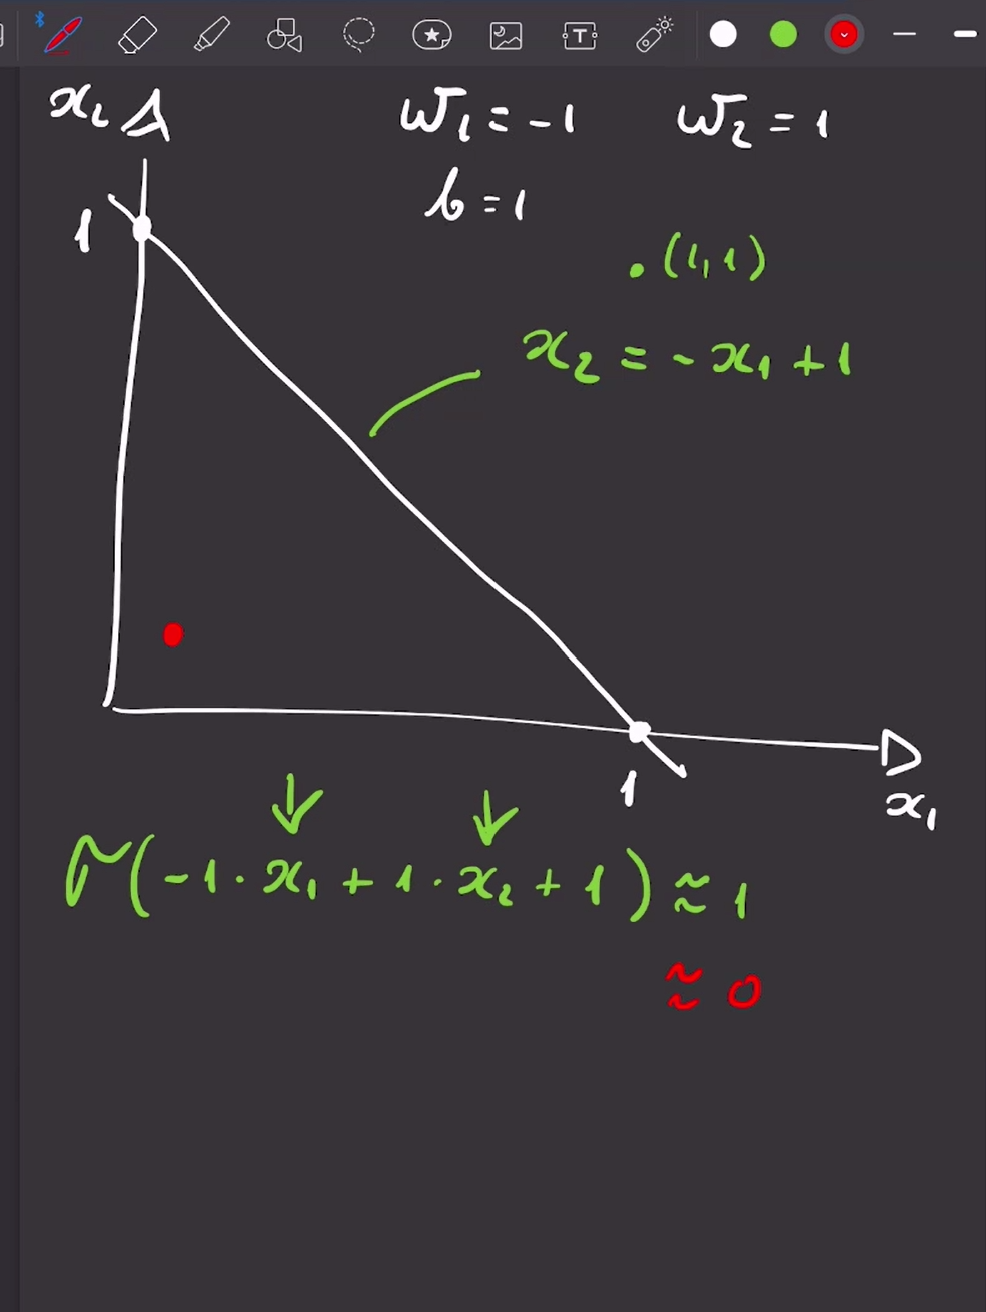 x₂
w₁ = -1 w₂ = 1
b = 1
1
(1, 1)
x₂ = -x₁ + 1
1
x₁
σ(-1 · x₁ + 1 · x₂ + 1) ≈ 1
≈ 0